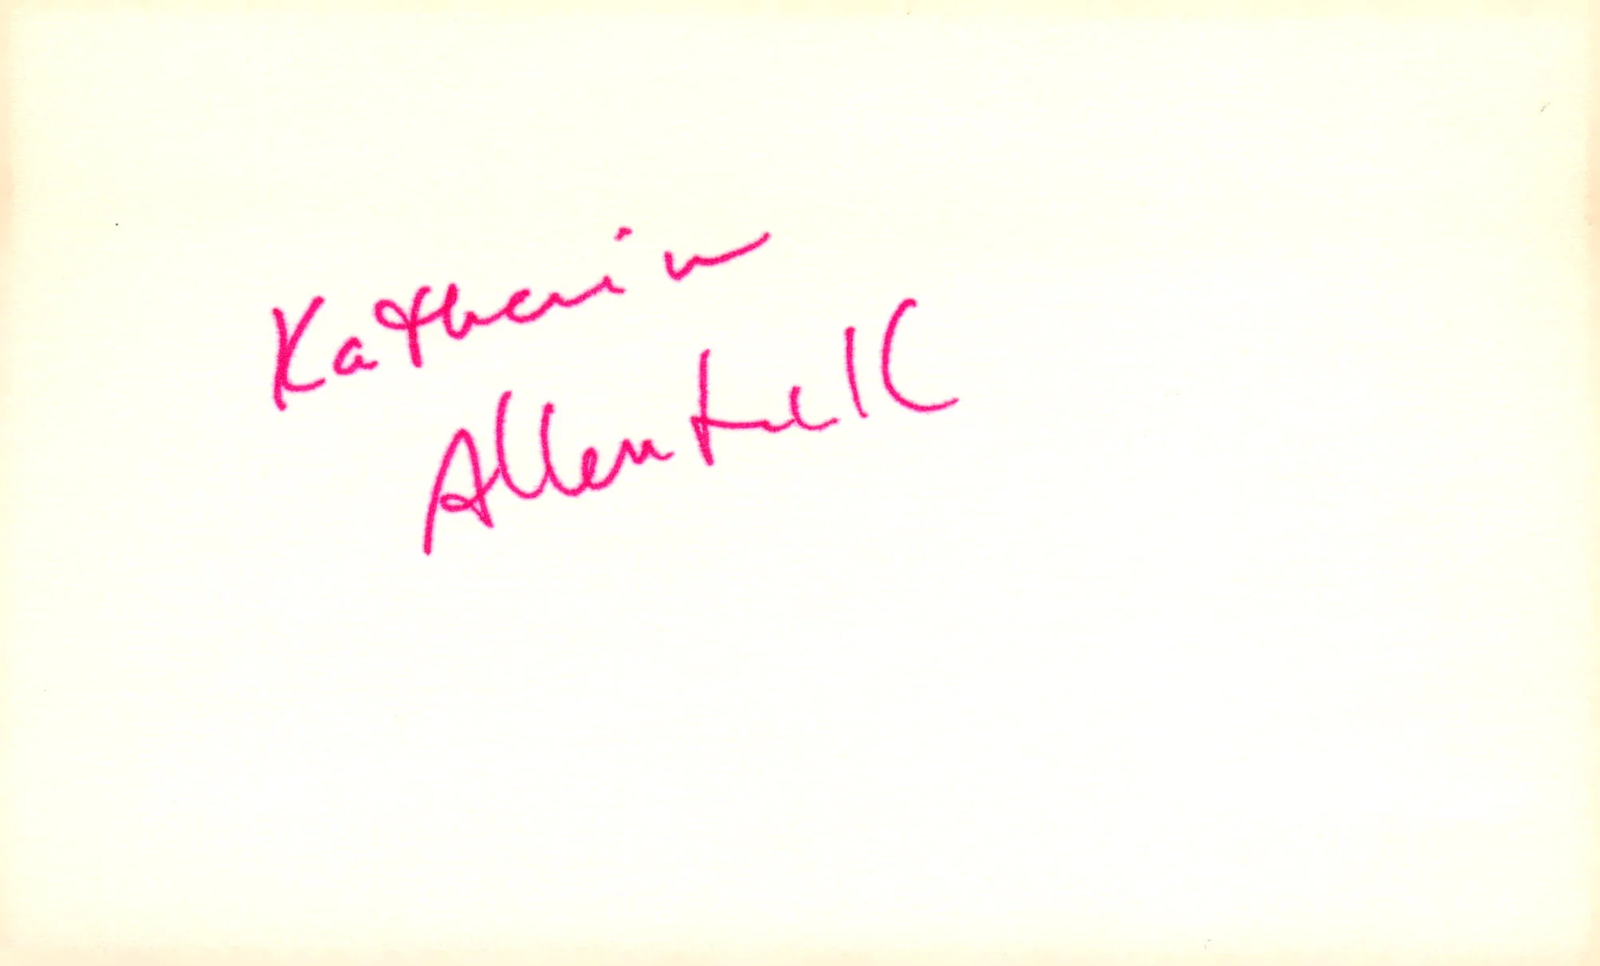 Katherine
Allentuck